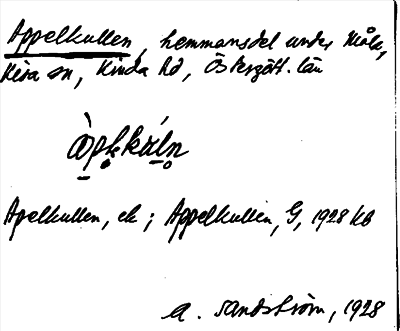 Appelkullen, hemmansdel under Måla,
Kisa sn, Kinda hd, Östergötl. län
Apelkullen, ek ; Appelkullen, G, 1928 kb
A. Sandström, 1928